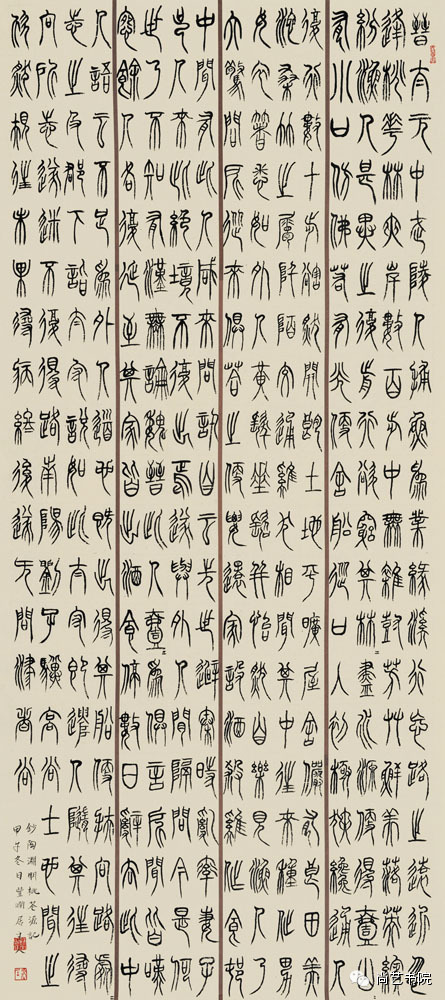 晉太元中武陵人捕魚為業緣溪行忘路之遠近忽
逢桃花林夾岸數百步中無雜樹芳草鮮美落英繽
紛漁人甚異之復前行欲窮其林=盡水源便得壹山
有小口仿佛若有光便舍船從口入初極狹纔通人
復行數十步豁然開朗土地平曠屋舍儼有良田美
池桑竹之屬阡陌交通雞犬相聞其中往來種作男
女衣著悉如外人黃髮垂髫並怡然自樂見漁人乃
大驚問所從來俱答之便要還家設酒殺雞作食村
中聞有此人咸來問訊自云先世避秦時亂率妻子
邑人來此絕境不復出焉遂與外人間隔問今是何
世乃不知有漢無論魏晉此人壹=為俱言所聞皆嘆
惋餘人各復延至其家皆出酒食停數日辭去此中
人語云不足為外人道也既出得其船便扶向路處
志之及郡下詣太守說如此太守即遣人隨其往尋
向所志遂迷不復得路南陽劉子驥高尚士也聞之
欣然規往未果尋病終後遂无問津者
鈔陶淵明桃花源記
甲午冬日
尚艺书院